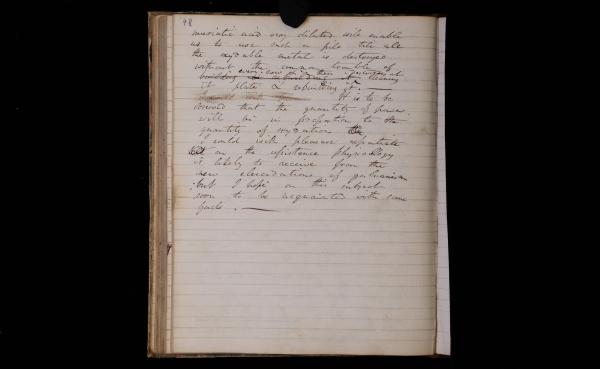 98
muriatic acid very diluted will enable
us to use such a pile till all
the oxydable metal is destroyed
without the common trouble of
every now & then
building &
it plate & rebuilding it. —
It is to be
observed that the quantity of power
will be in proportion to the
quantity of oxydation
I could with pleasure expatiate
on the assistance physiology
is likely to receive from the
new elucidations of galvanism
but I hope on this subject
soon to be acquainted with some
facts. —